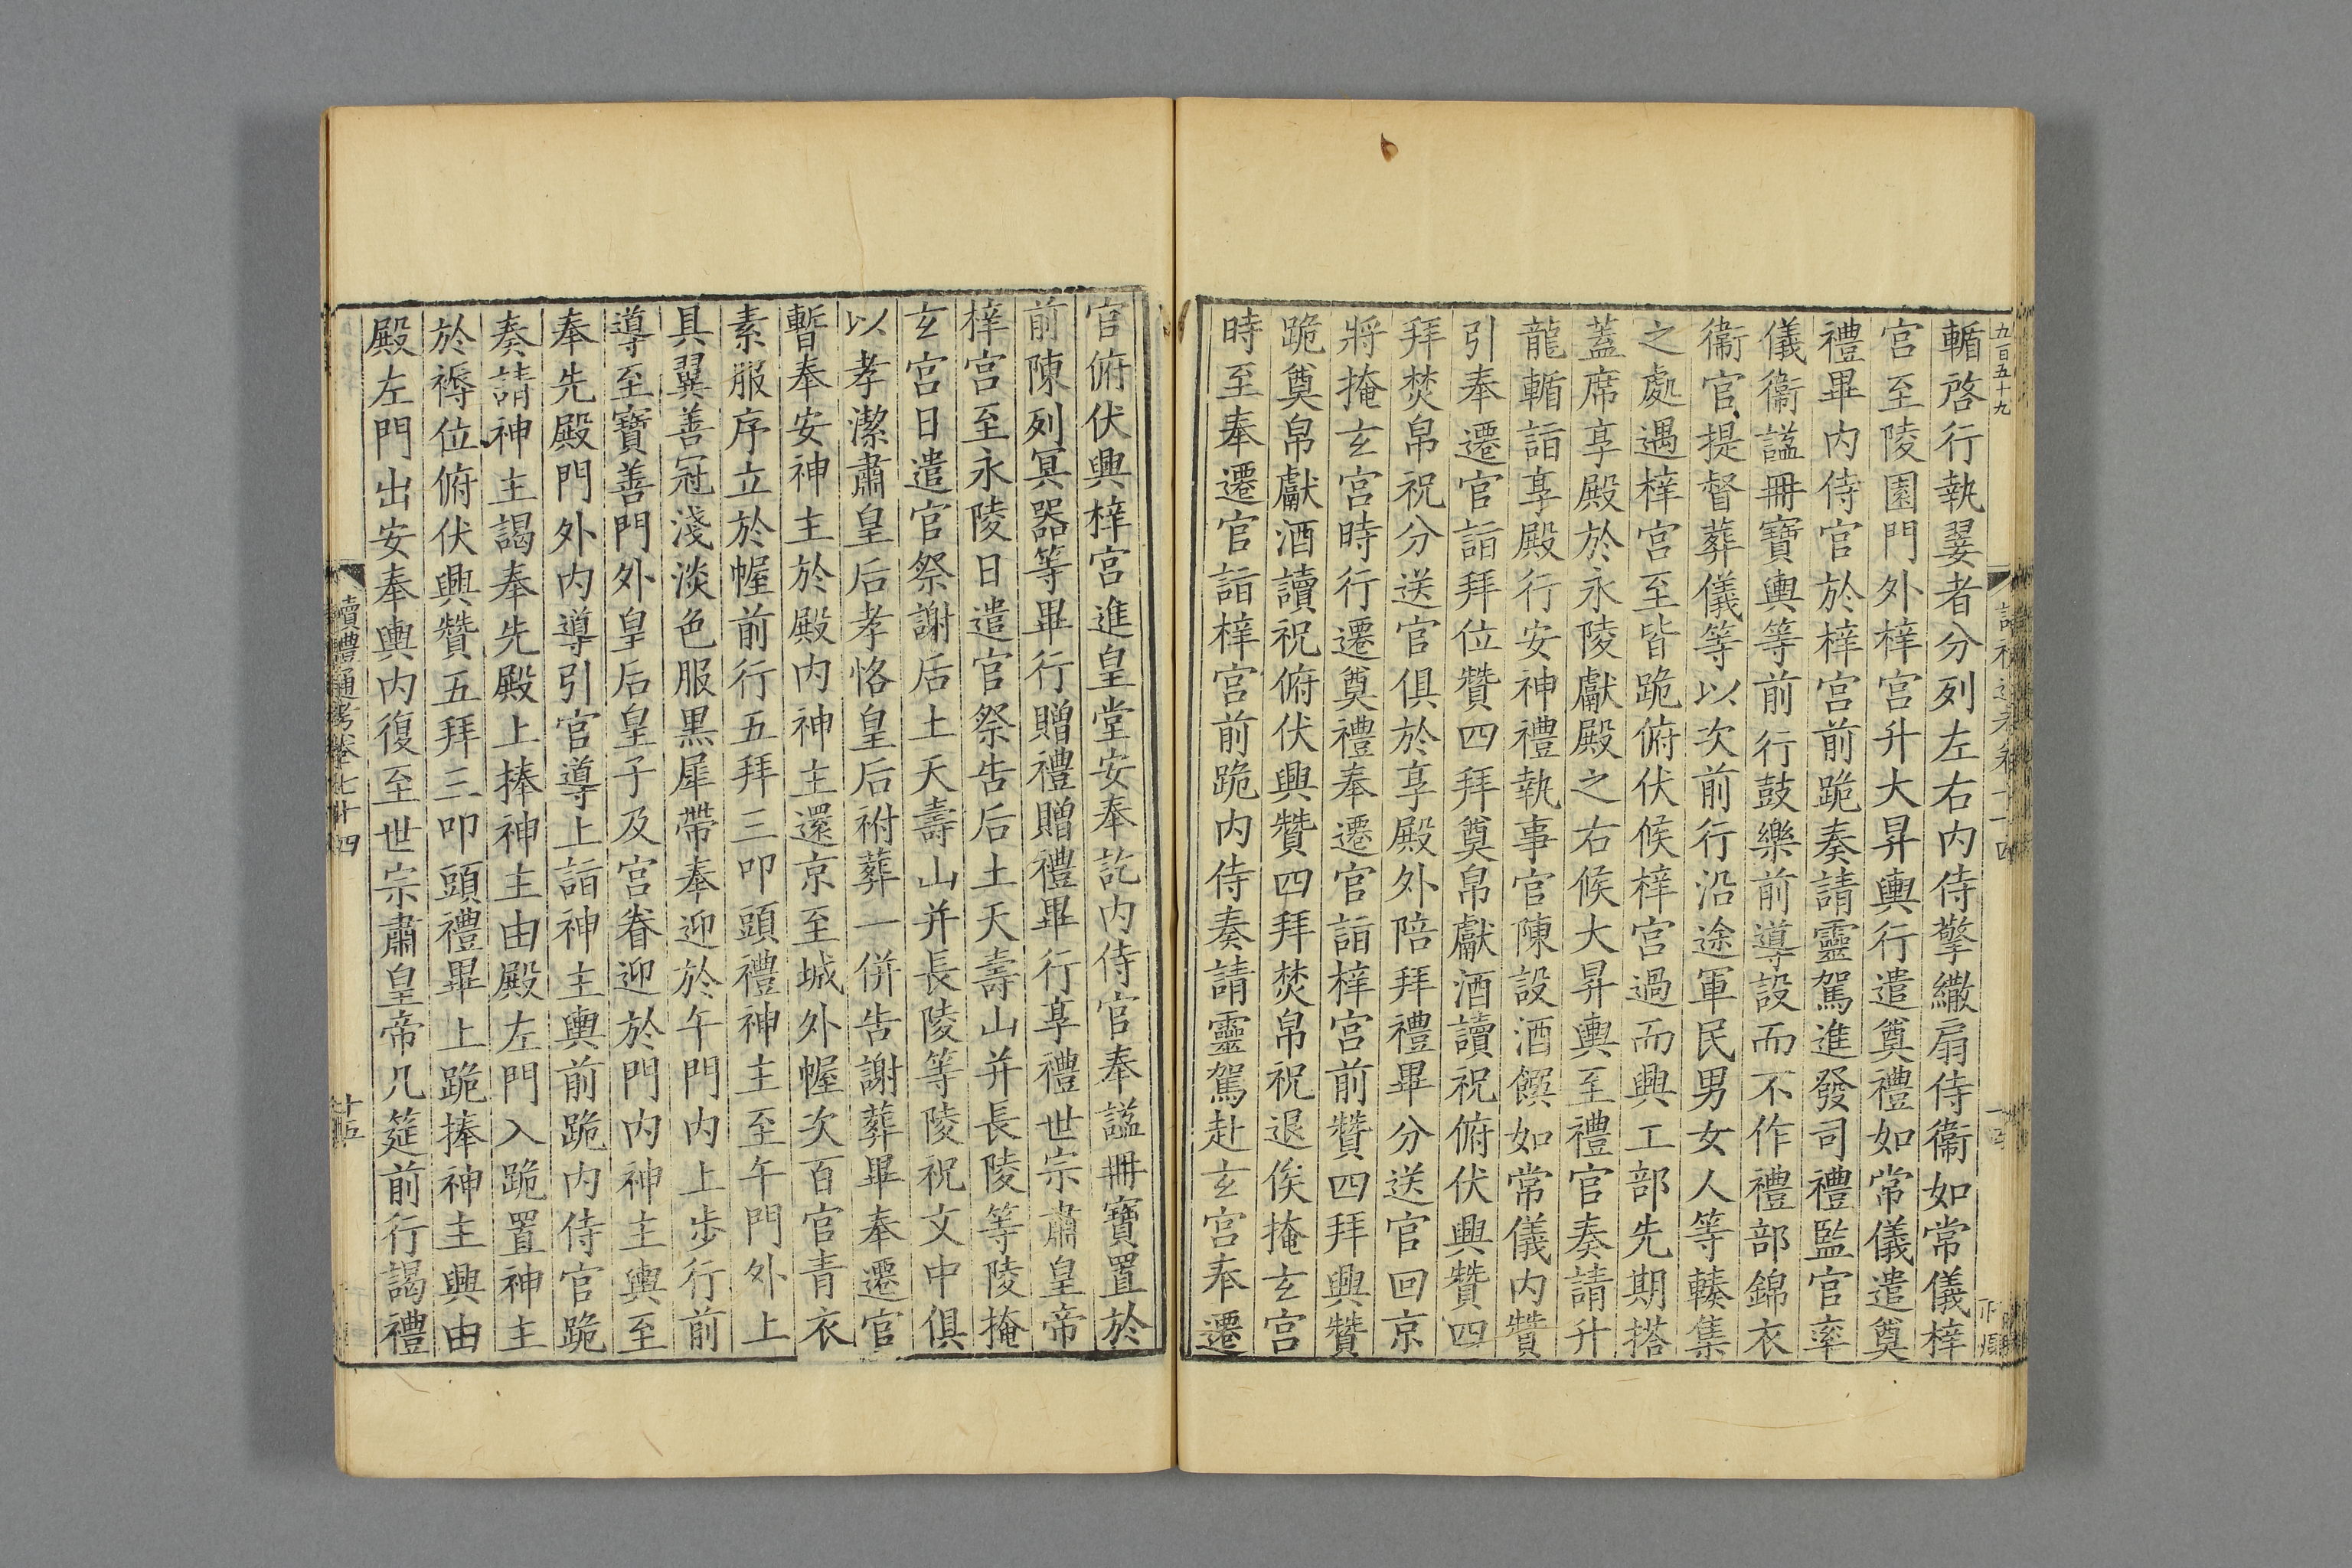 九百五十九
輴啓行執翣者分列左右内侍擎繖扇侍衞如常儀梓
宫至陵園門外梓宫升大昇輿行遣奠禮如常儀遣奠
禮畢内侍官於梓宫前跪奏請靈駕進發司禮監官率
儀衞謚冊寶輿等前行鼓樂前導設而不作禮部錦衣
衞官提督葬儀等以次前行沿途軍民男女人等輳集
之處遇梓宫至皆跪俯伏候梓宫過而興工部先期搭
蓋席享殿於永陵獻殿之右候大昇輿至禮官奏請升
龍輴詣享殿行安神禮執事官陳設酒饌如常儀内贊
引奉遷官詣拜位贊四拜奠帛獻酒讀祝俯伏興贊四
拜焚帛祝分送官俱於享殿外陪拜禮畢分送官回京
將掩玄宫時行遷奠禮奉遷官詣梓宫前贊四拜興贊
跪奠帛獻酒讀祝俯伏興贊四拜焚帛祝退俟掩玄宫
時至奉遷官詣梓宫前跪内侍奏請靈駕赴玄宫奉遷
官俯伏興梓宫進皇堂安奉訖内侍官奉謚冊寶置於
前陳列冥器等畢行贈禮贈禮畢行享禮世宗肅皇帝
梓宫至永陵日遣官祭告后土天壽山并長陵等陵掩
玄宫日遣官祭謝后土天壽山并長陵等陵祝文中俱
以孝潔肅皇后孝恪皇后祔葬一併告謝葬畢奉遷官
暫奉安神主於殿内神主還京至城外幄次百官青衣
素服序立於幄前行五拜三叩頭禮神主至午門外上
具翼善冠淺淡色服黒犀帶奉迎於午門内上步行前
導至寶善門外皇后皇子及宫眷迎於門内神主輿至
奉先殿門外内導引官導上詣神主輿前跪内侍官跪
奏請神主謁奉先殿上捧神主由殿左門入跪置神主
於褥位俯伏興贊五拜三叩頭禮畢上跪捧神主興由
殿左門出安奉輿内復至世宗肅皇帝几筵前行謁禮
讀禮通考卷七十四
十五